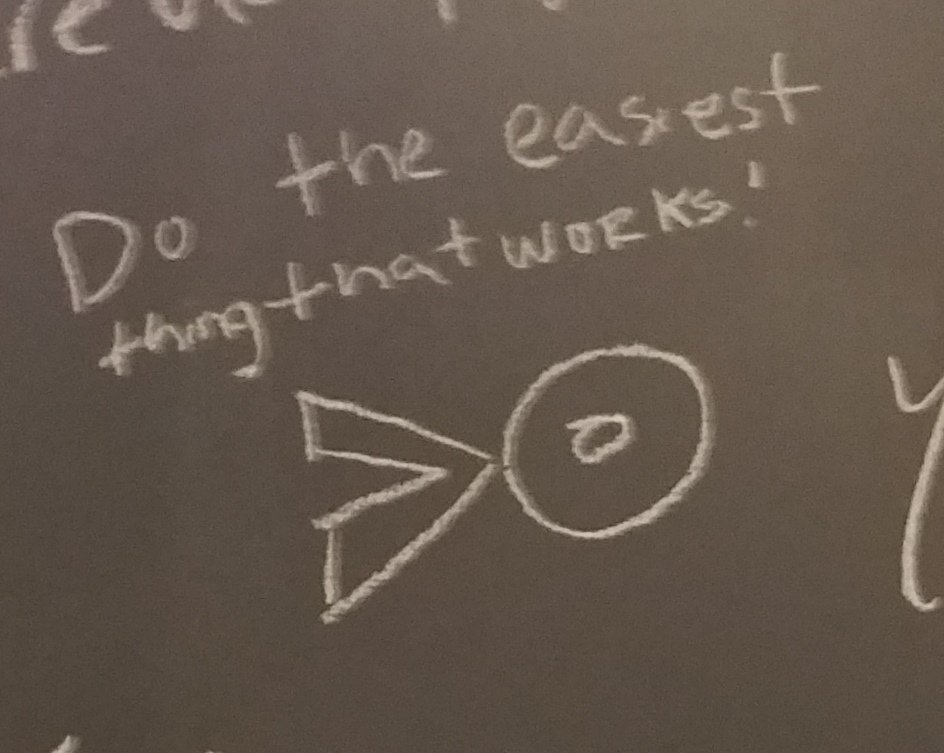 Do the easiest
thing that works!